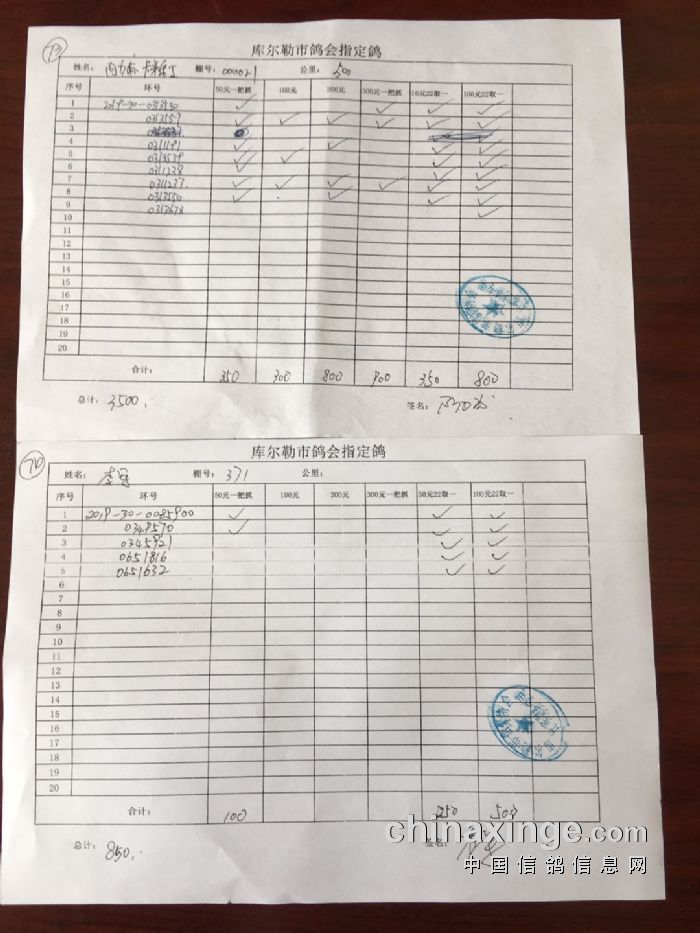 73
库尔勒市鸽会指定鸽
姓名： 棚号：000021 公里：500
序号 环号 50元一把抓 100元 200元 300元一把抓 50元22取一 100元22取一
1 2019-30-0313530 ✓ ✓ ✓ ✓
2 0313557 ✓ ✓ ✓ ✓ ✓ ✓
3
4 0311191
5 0313539
6 0311238
7 0311237
8 0313550
9 0313678
10
11
12
13
14
15
16
17
18
19
20
合计： 350 300 800 900 350 800
总计：3500. 签名：
70
库尔勒市鸽会指定鸽
姓名：李军 棚号：371 公里：
序号 环号 50元一把抓 100元 200元 300元一把抓 50元22取一 100元22取一
1 2019-30-0085900 ✓ ✓ ✓
2 0349570 ✓ ✓ ✓
3 0345921 ✓ ✓
4 0651816 ✓ ✓
5 0651632 ✓ ✓
6
7
8
9
10
11
12
13
14
15
16
17
18
19
20
合计： 100 250 500
总计：850. 签名：
chinaxinge.com
中国信鸽信息网